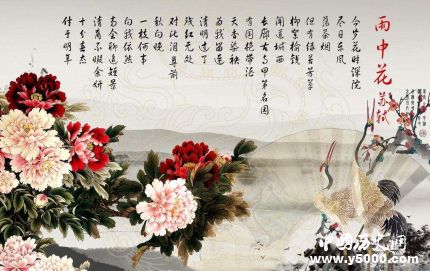 雨中花
苏轼
今岁花时深院
尽日东风
荡茶烟
但有绿苔芳草
柳絮榆钱
闻道城西
长廊古寺甲第名园
有国艳带酒
天香染袂
为我留连
清明过了
残红无处
对此泪洒尊前
秋向晚
一枝何事
向我依然
高会聊追短景
清商不暇余妍
十分春态
付于明年
中国历史网
www.y5000.com